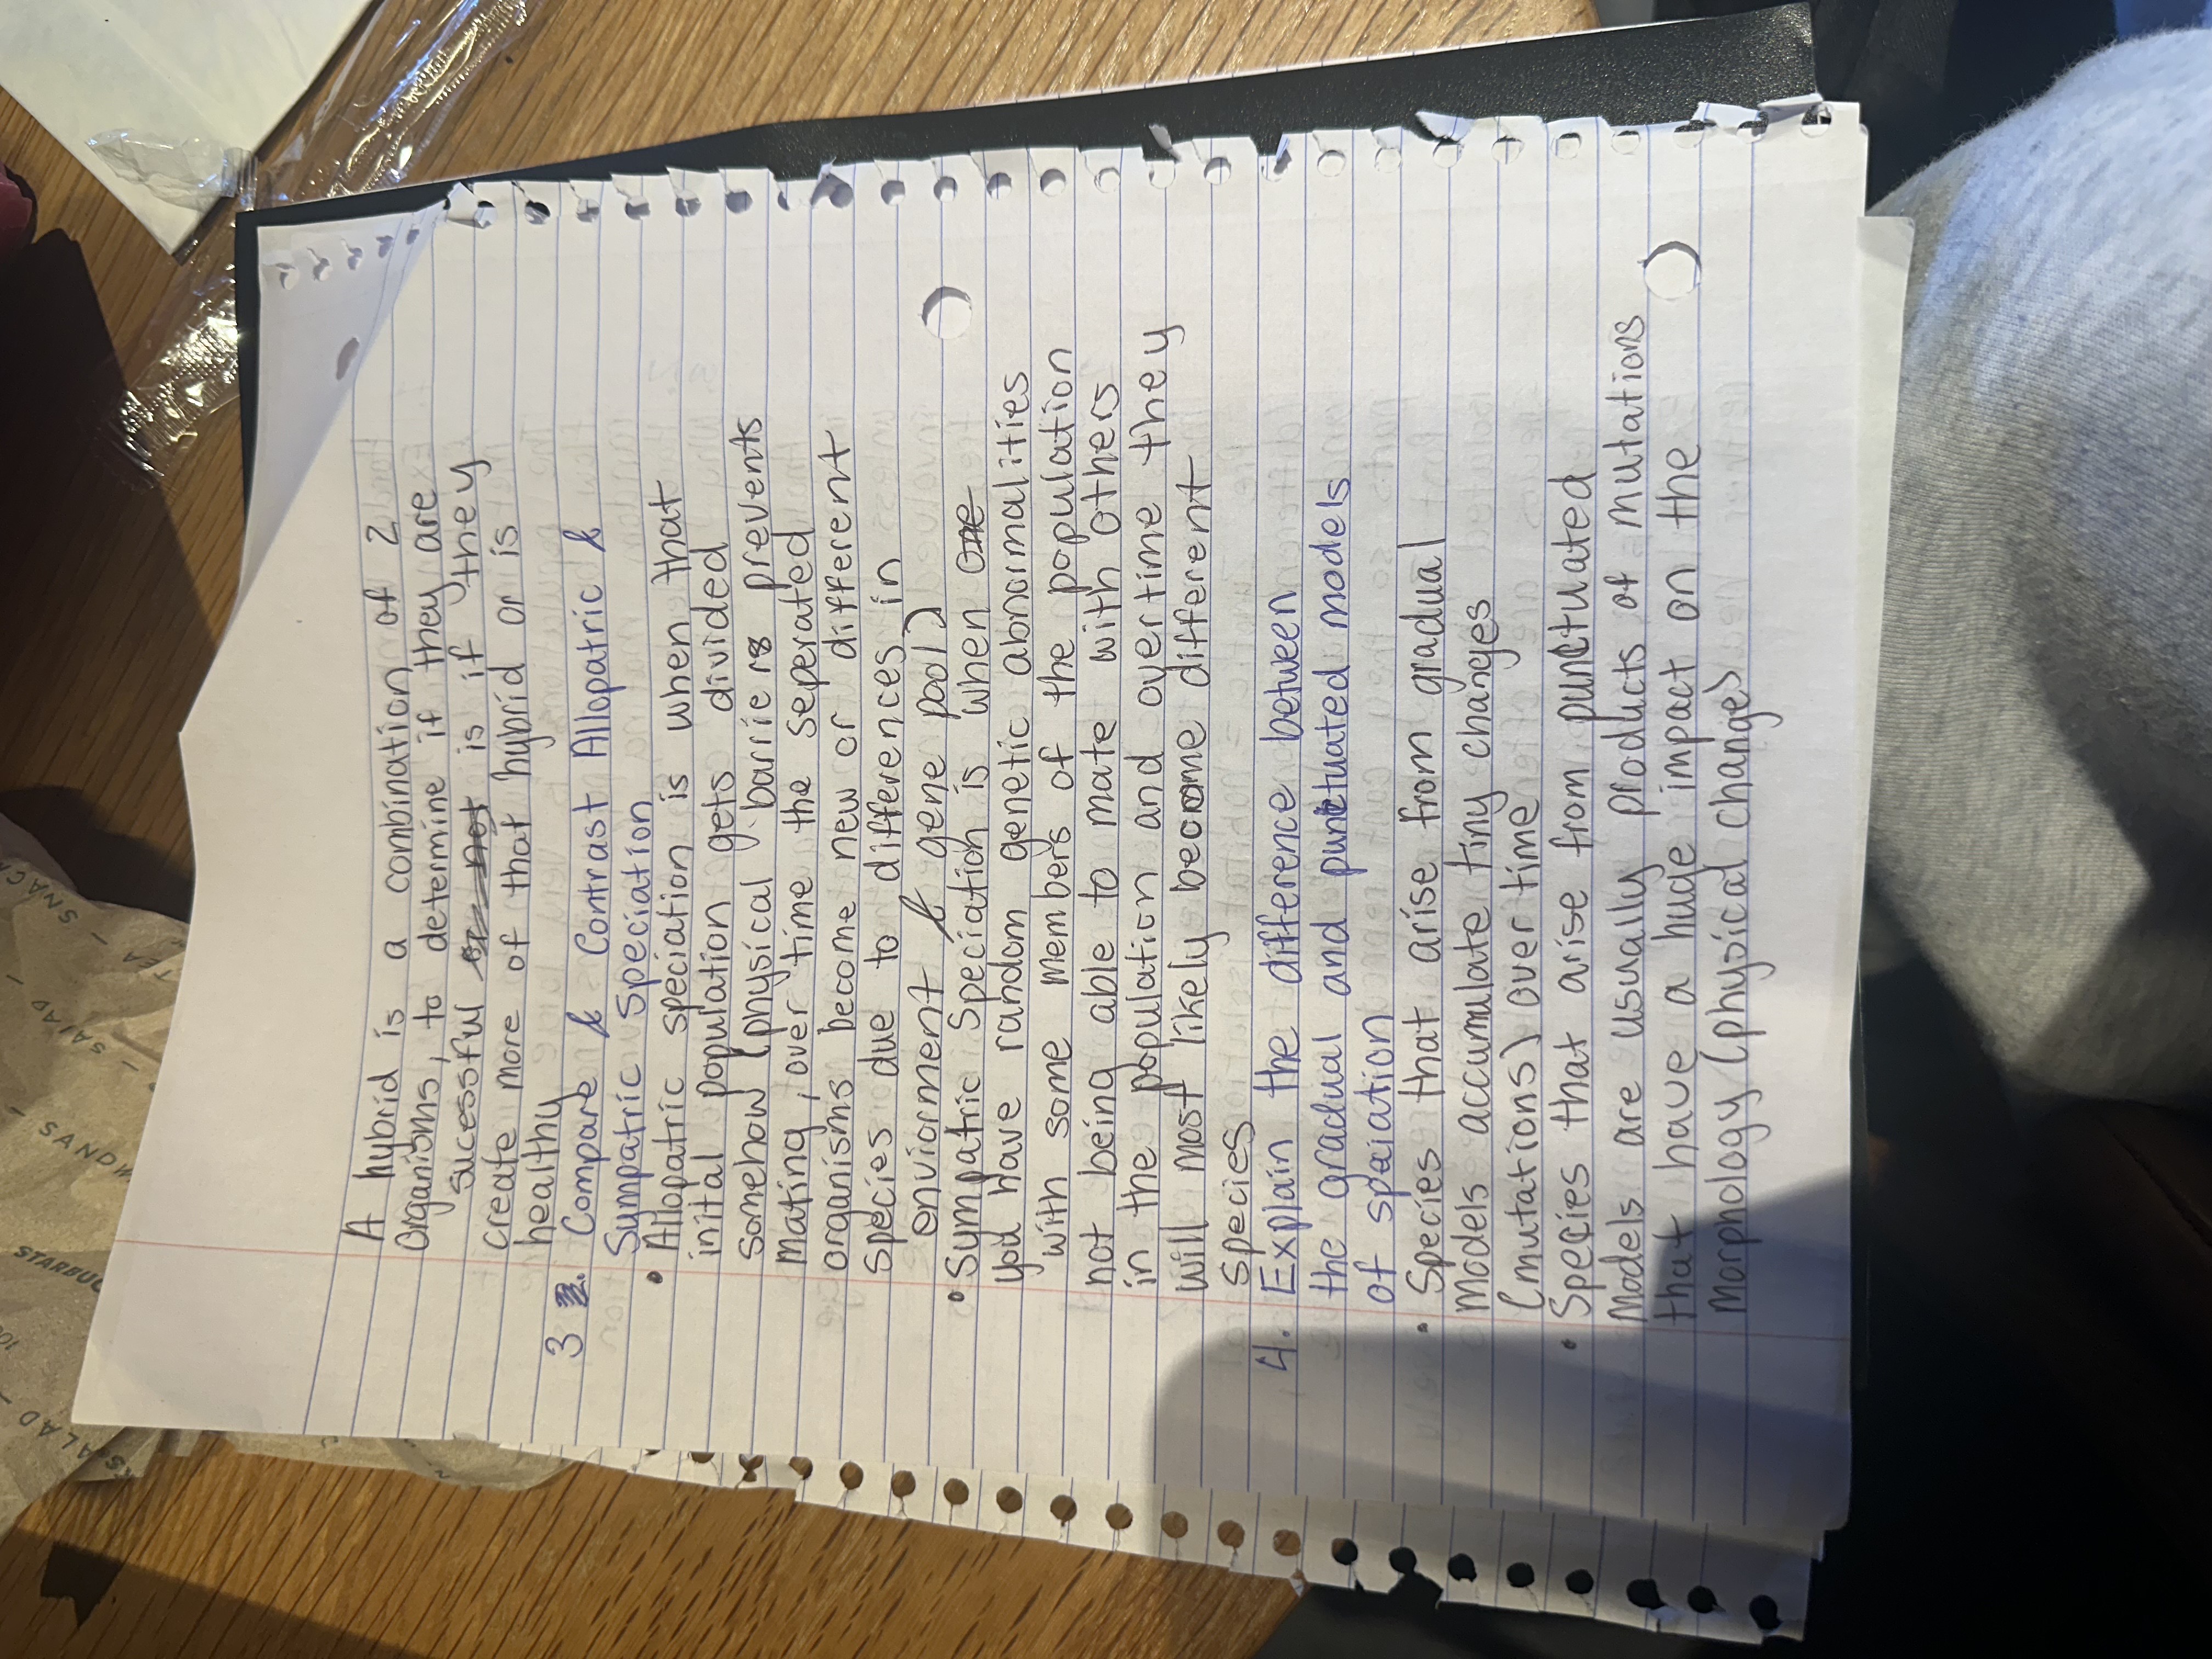 A hybrid is a combination of 2
Organisms, to determine if they are
successful or not is if they
create more of that hybrid or is
healthy
3 2. Compare & Contrast Allopatric &
Sympatric Speciation
• Allopatric speciation is when that
inital population gets divided
somehow (physical barrier is prevents
mating, over time the seperated
organisms become new or different
species due to differences in
enviornment & gene pool)
• Sympatric Speciation is when one
you have random genetic abnormalities
with some members of the population
not being able to mate with others
in the population and overtime they
will most likely become different
species
4. Explain the difference between
the gradual and punctuated models
of spciation
• Species that arise from gradual
Models accumulate tiny changes
(mutations) over time
• Species that arise from punctuated
Models are usually products of mutations
that have a huge impact on the
morphology (physical change)
STARBUC
SANDW
TEA
SNACK
SALAD
SALAD